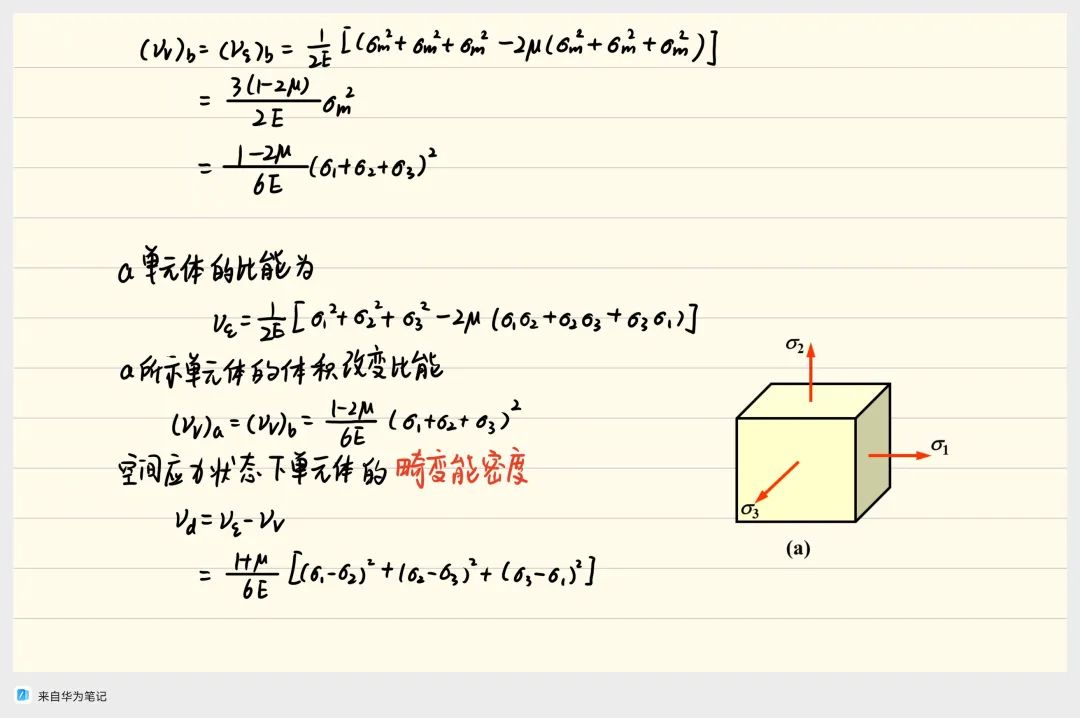 (νV)b = (νε)b = 1/2E [(σm² + σm² + σm² - 2μ(σm² + σm² + σm²)]
= 3(1-2μ)/2E σm²
= 1-2μ/6E (σ1+σ2+σ3)²
a单元体的比能为
νε = 1/2E [σ1² + σ2² + σ3² - 2μ(σ1σ2 + σ2σ3 + σ3σ1)]
a所示单元体的体积改变比能
(νV)a = (νV)b = 1-2μ/6E (σ1+σ2+σ3)²
空间应力状态下单元体的畸变能密度
νd = νε - νV
= 1+μ/6E [(σ1-σ2)² + (σ2-σ3)² + (σ3-σ1)²]
σ2
σ1
σ3
(a)
来自华为笔记